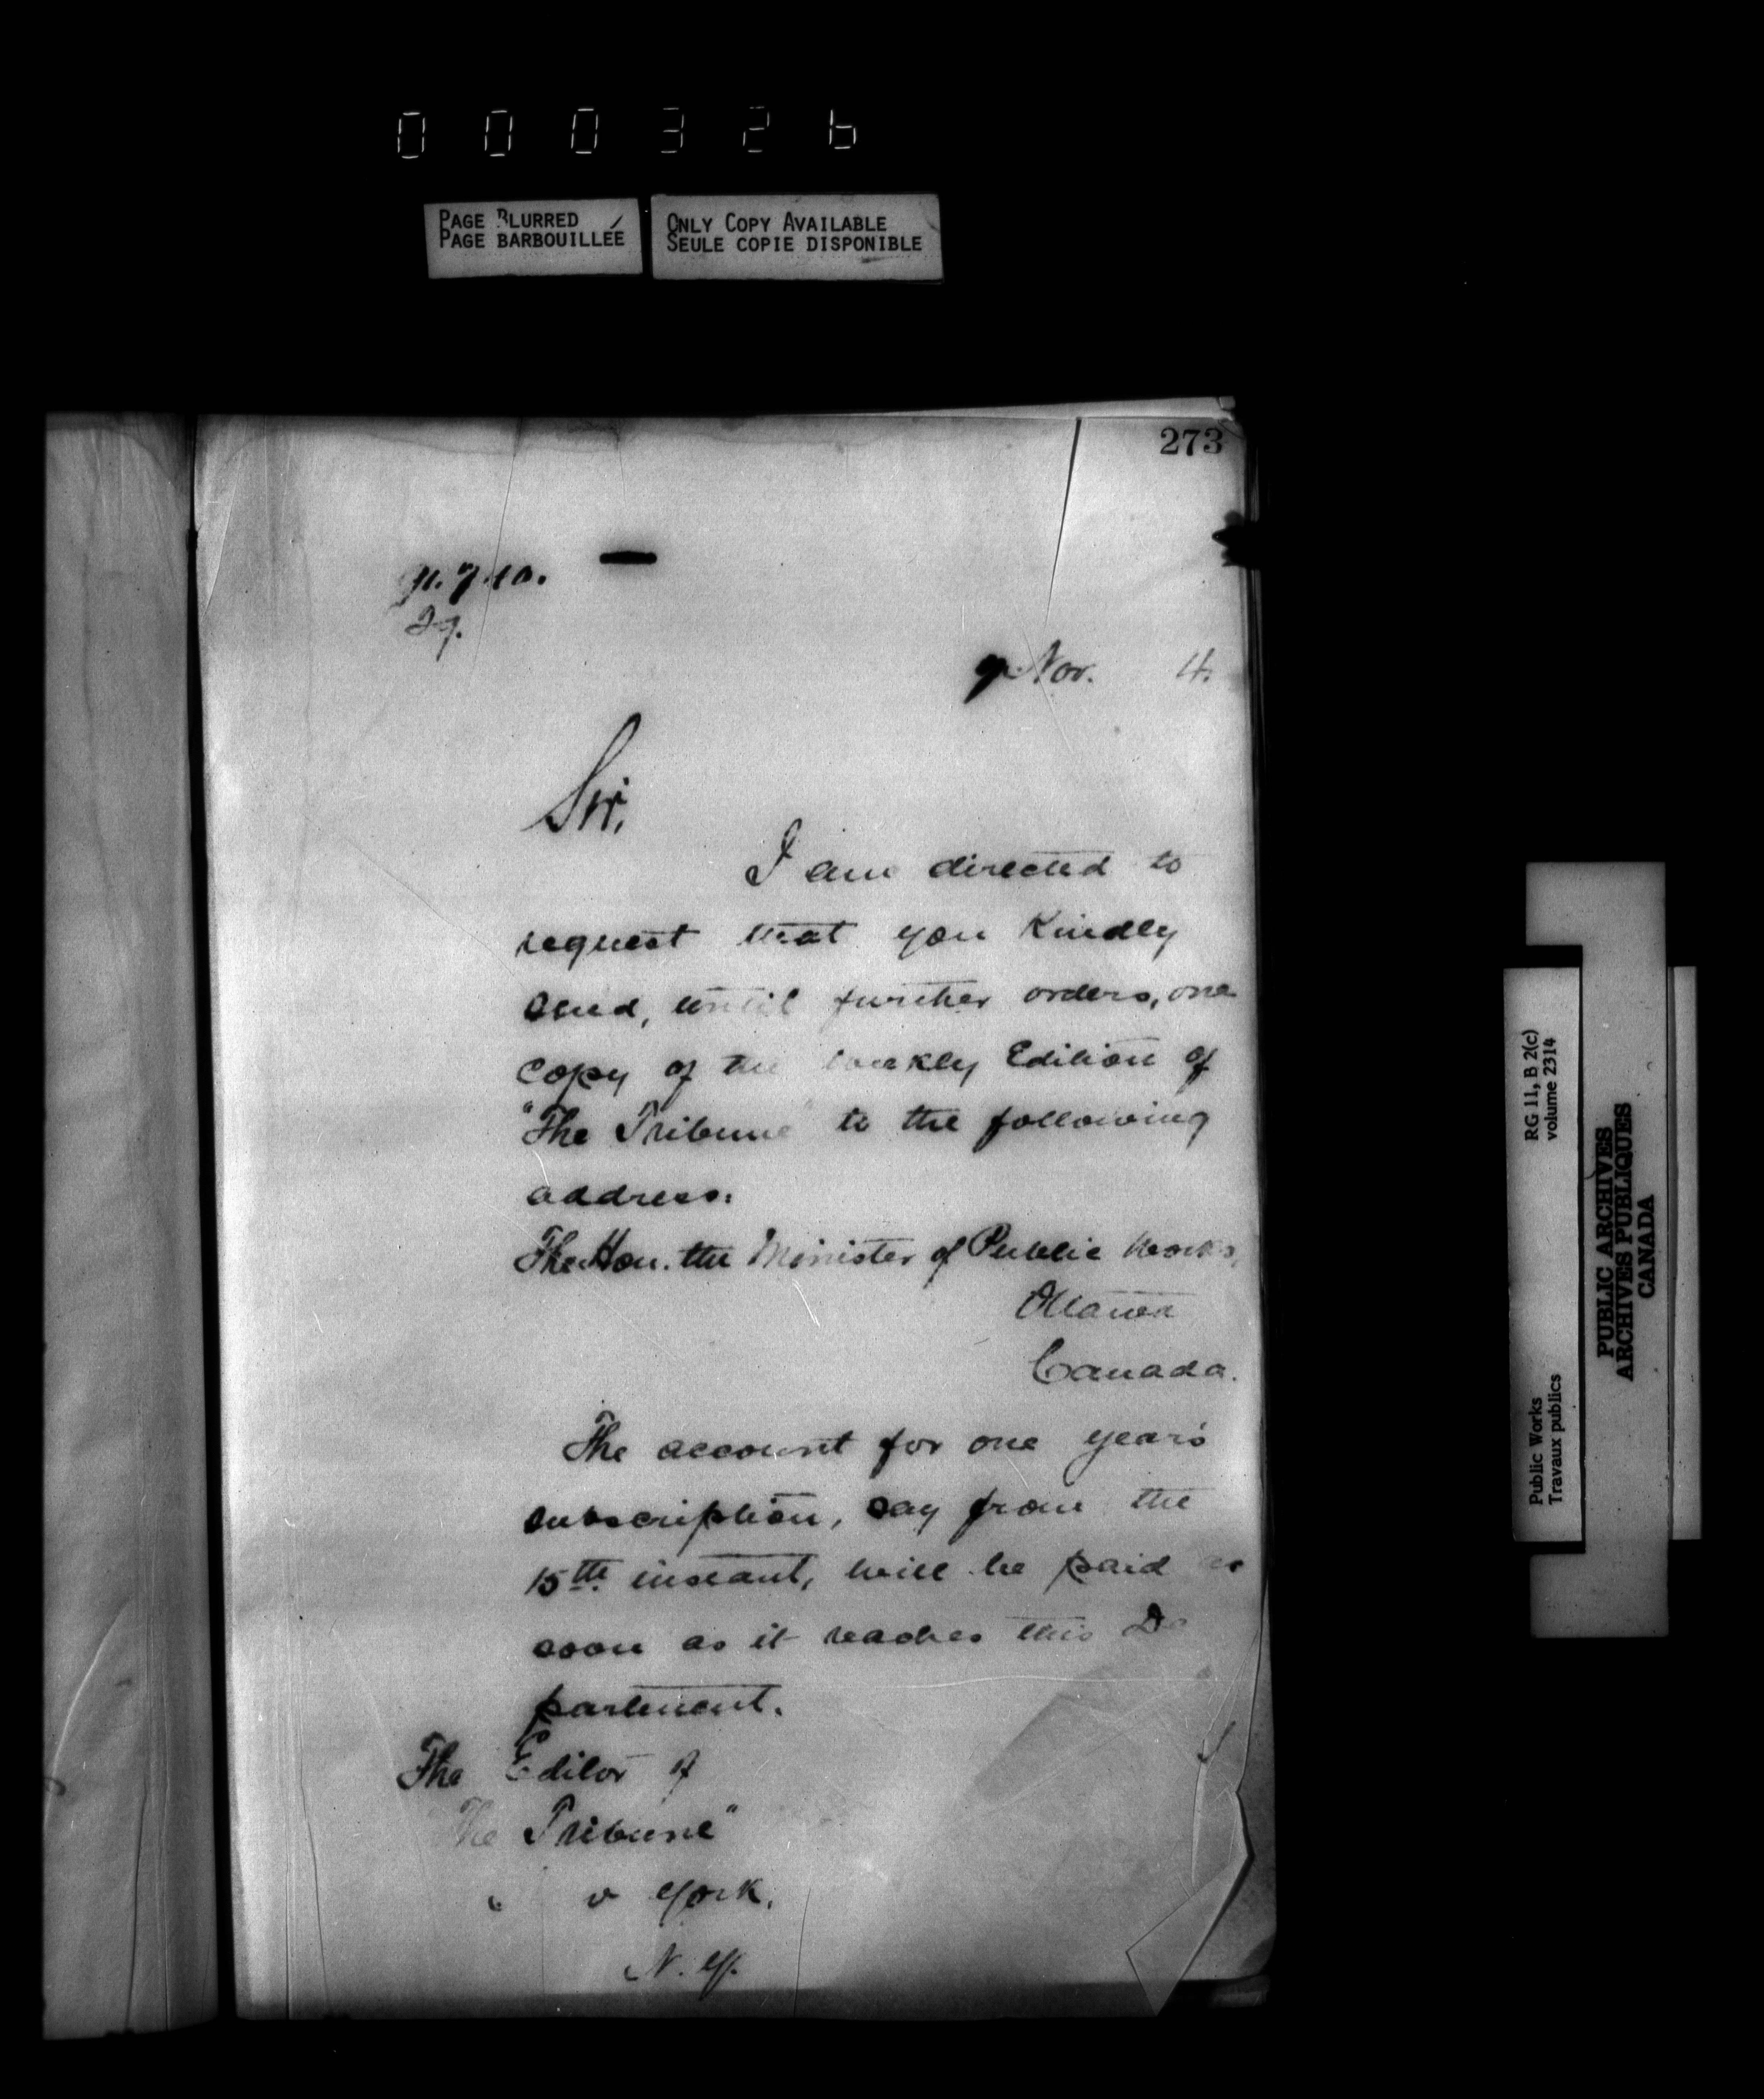 000326
PAGE BLURRED
PAGE BARBOUILLÉE
ONLY COPY AVAILABLE
SEULE COPIE DISPONIBLE
273
9 Nov. 4.
Sir,
I am directed to
request that you Kindly
send, until further orders, one
copy of the weekly Edition of
"The Tribune" to the following
address:
The Hon. the Minister of Public Works,
Ottawa
Canada.
The account for one year's
subscription, say from the
15th instant, will be paid as
soon as it reaches this De
partment.
The Editor of
The Tribune"
York,
N. Y.
RG 11, B 2(c)
volume 2314
Public Works
Travaux publics
PUBLIC ARCHIVES
ARCHIVES PUBLIQUES
CANADA